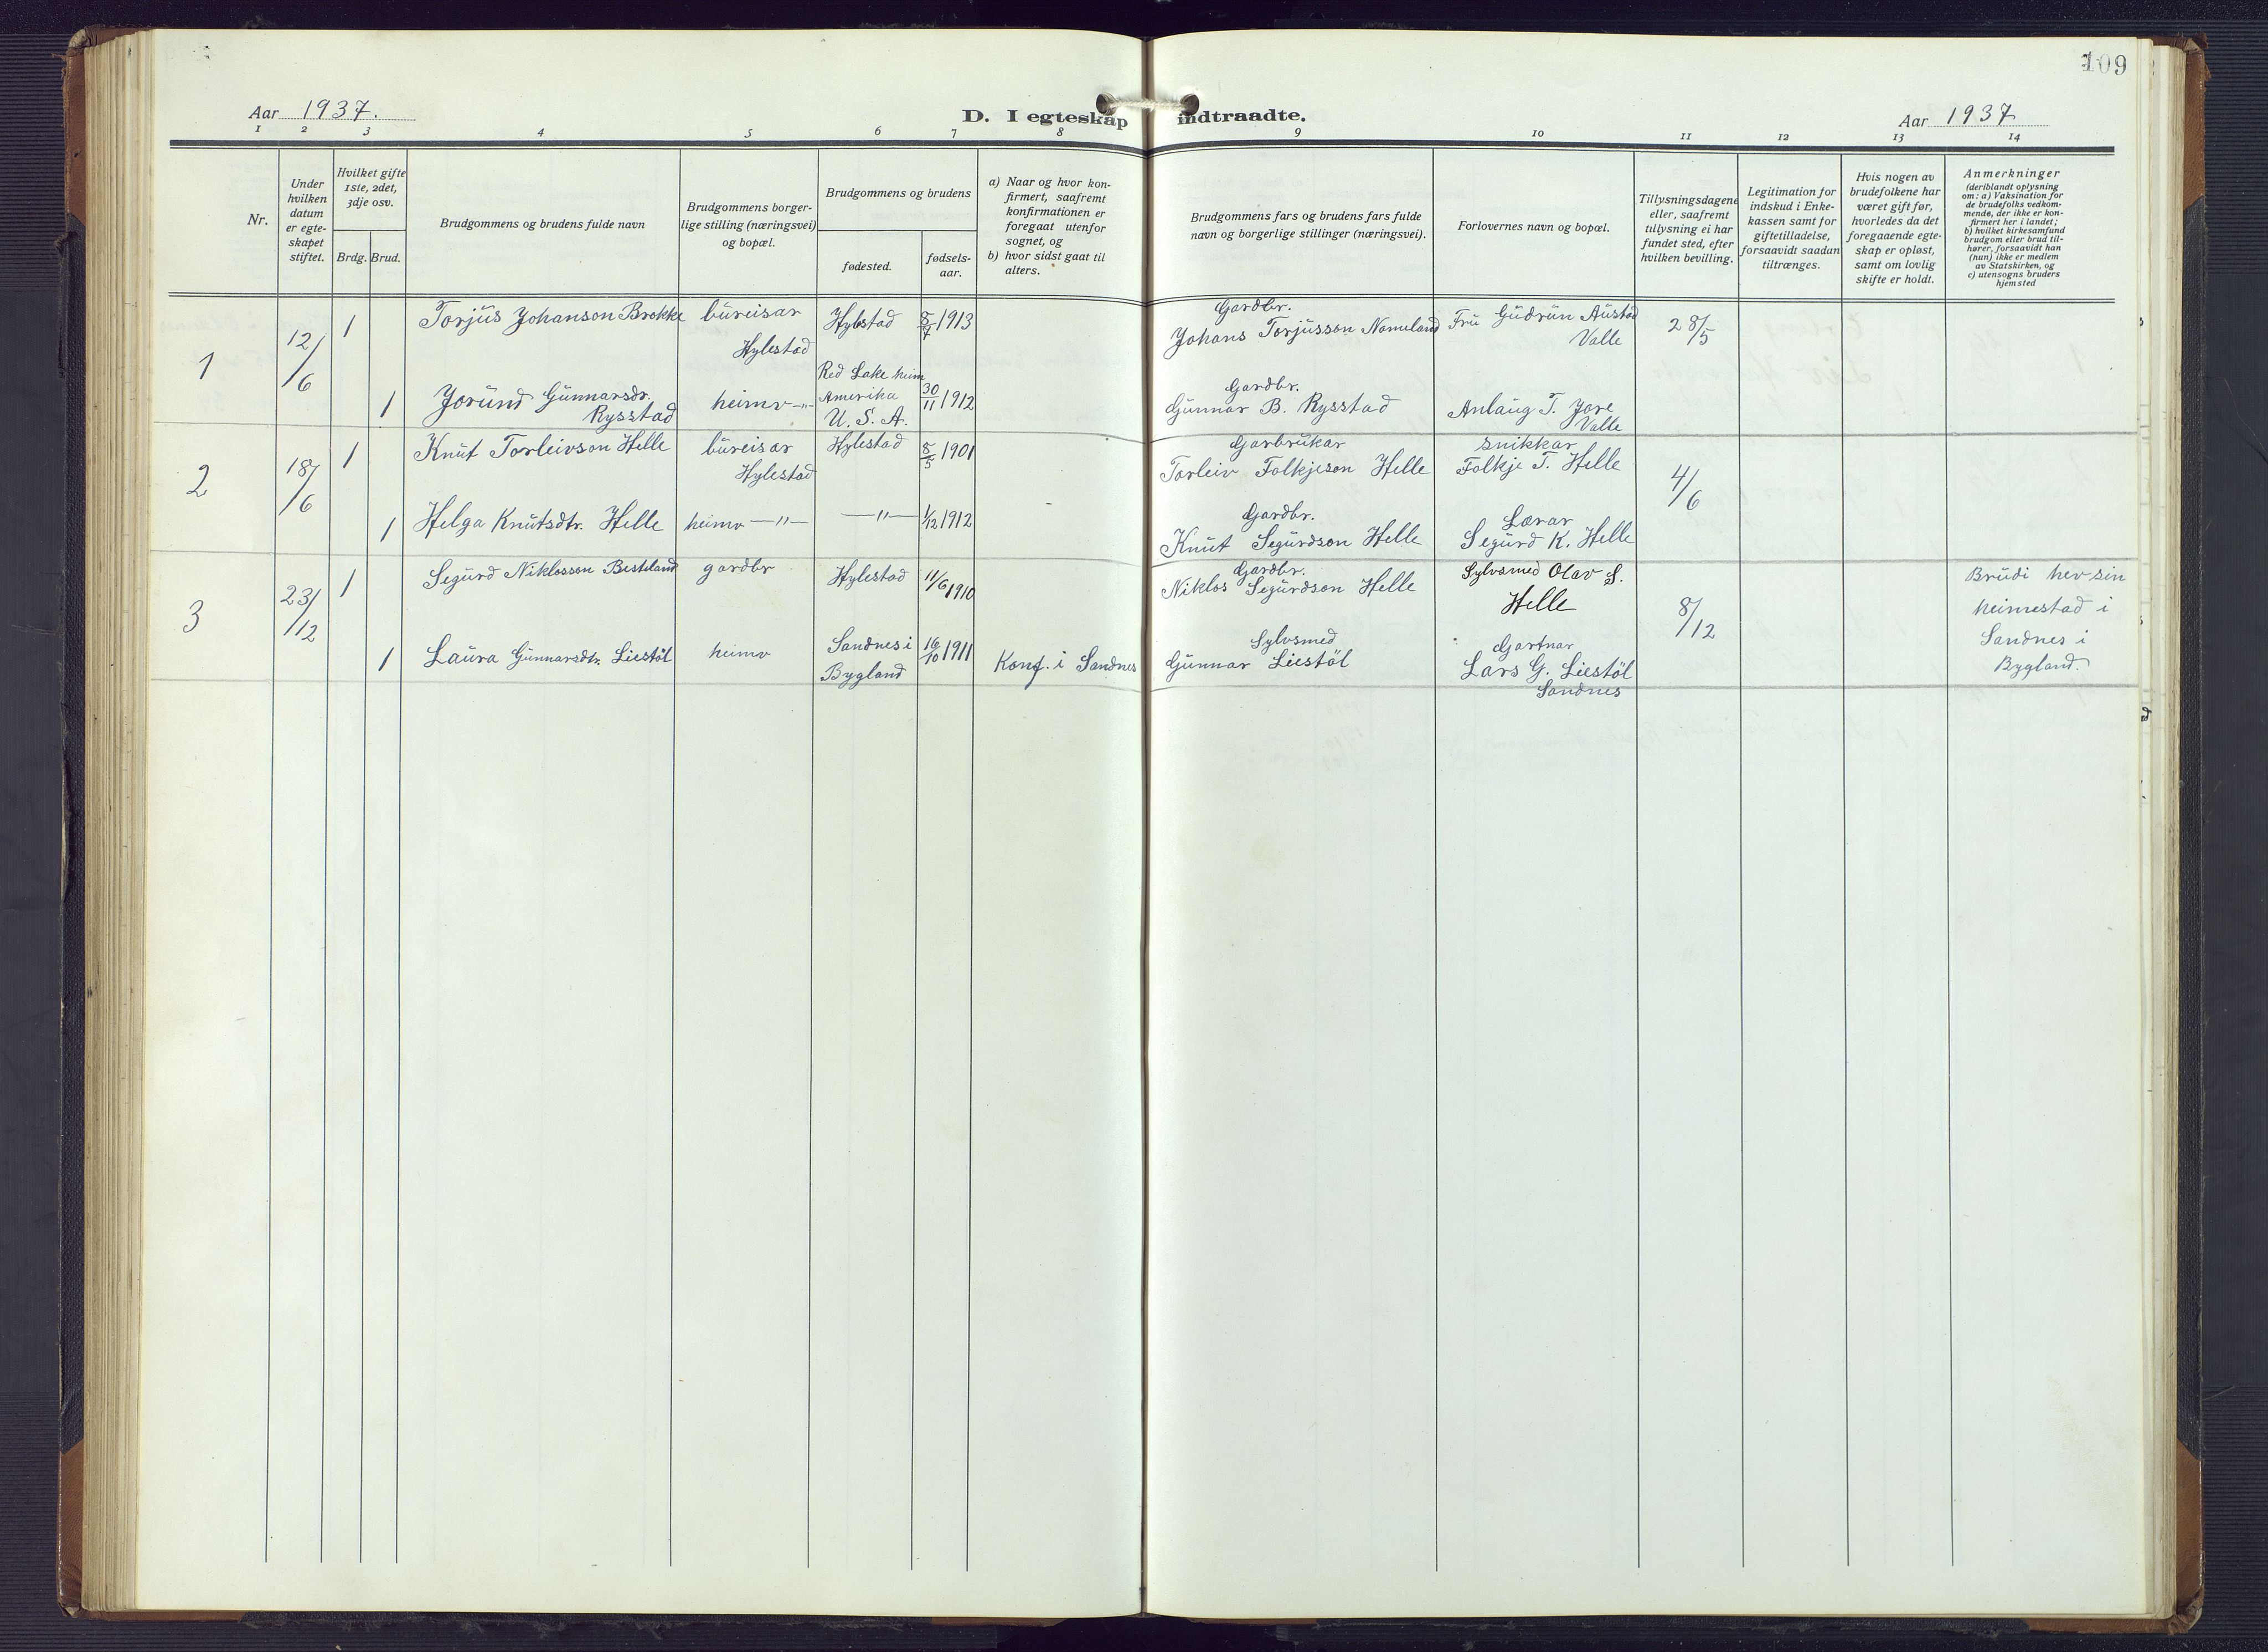 109
Aar 1937.
D. I egteskap indtraadte.
Aar 1937
1 2 3 4 5 6 7 8 9 10 11 12 13 14
Nr.
Under
hvilken
datum
er egte-
skapet
stiftet.
Hvilket gifte
1ste, 2det,
3dje osv.
Brdg. Brud.
Brudgommens og brudens fulde navn
Brudgommens borger-
lige stilling (næringsvei)
og bopæl.
Brudgommens og brudens
fødested.
fødsels-
aar.
a) Naar og hvor kon-
firmert, saafremt
konfirmationen er
foregaat utenfor
sognet, og
b) hvor sidst gaat til
alters.
Brudgommens fars og brudens fars fulde
navn og borgerlige stillinger (næringsvei).
Forlovernes navn og bopæl.
Tillysningsdagene
eller, saafremt
tillysning ei har
fundet sted, efter
hvilken bevilling.
Legitimation for
indskud i Enke-
kassen samt for
giftetilladelse,
forsaavidt saadan
tiltrænges.
Hvis nogen av
brudefolkene har
været gift før,
hvorledes da det
foregaaende egte-
skap er opløst,
samt om lovlig
skifte er holdt.
Anmerkninger
(deriblandt oplysning
om: a) Vaksination for
de brudefolks vedkom-
mende, der ikke er kon-
firmert her i landet;
b) hvilket kirkesamfund
brudgom eller brud til-
hører, forsaavidt han
(hun) ikke er medlem
av Statskirken, og
c) utensogns bruders
hjemsted
1
12/6
1
Torjus Johanson Brokke
bureisar
Hylestad
Hylestad
8/7 1913
Gardbr.
Johans Torjusson Nomeland
Fru Gudrun Austad
Valle
28/5
1
Jorund Gunnarsdr.
Rysstad
heimv -"-
Red Lake heim
Amerika
U. S. A.
30/11 1912
Gardbr.
Gunnar B. Rysstad
Anlaug T. Jore
Valle
2
18/6
1
Knut Torleivson Helle
bureisar
Hylestad
Hylestad
8/5 1901
Garbrukar
Torleiv Folkjeson Helle
Snikkar
Folkje T. Helle
4/6
1
Helga Knutsdtr. Helle
heimv -"-
-"-
1/12 1912
Gardbr.
Knut Segurdson Helle
Lærar
Segurd K. Helle
3
23/12
1
Segurd Niklosson Besteland
gardbr
Hylestad
11/6 1910
Gardbr.
Niklos Segurdson Helle
Sylvsmed Olav S.
Helle
8/12
Brudi hev sin
heimestad i
Sandnes i
Bygland.
1
Laura Gunnarsdtr. Liestöl
heimv
Sandnes i
Bygland
16/10 1911
Konf. i Sandnes
Sylvsmed
Gunnar Liestöl
Gartnar
Lars G. Liestöl
Sandnes